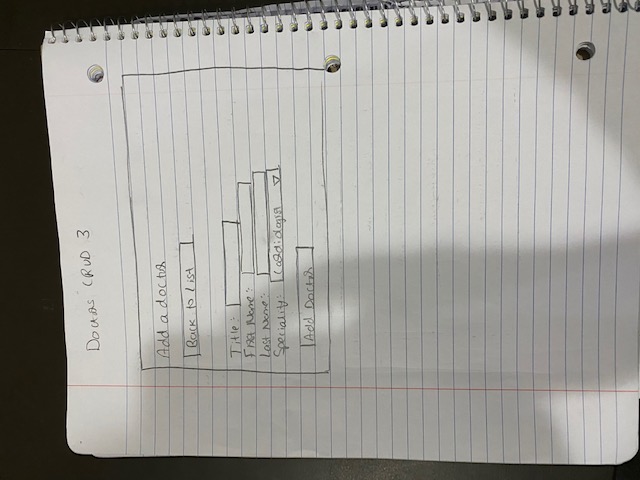 Doctors CRUD 3
Add a doctor
Back to List
Title:
First Name:
Last Name:
Speciality: Cardiologist
Add Doctor